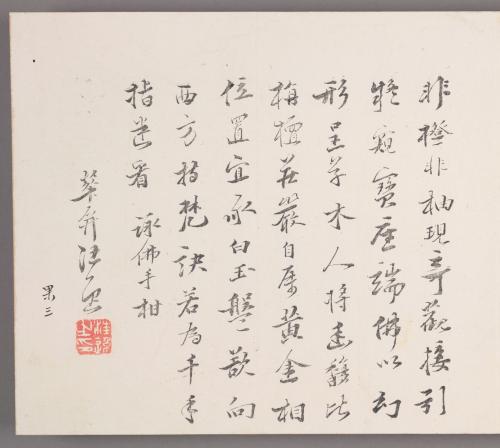 非橙非柚現奇觀接引
疑窺寶座端佛以幻
形呈草木人將遠馥比
栴檀莊嚴自屬黃金相
位置宜承白玉盤欲向
西方持梵訣若為千手
指迷看 詠佛手柑
果三